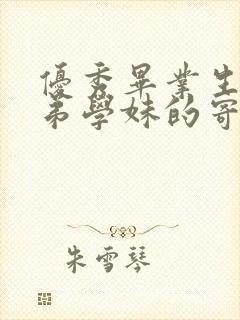 優秀畢業生
弟學妹的寄
朱雪琴